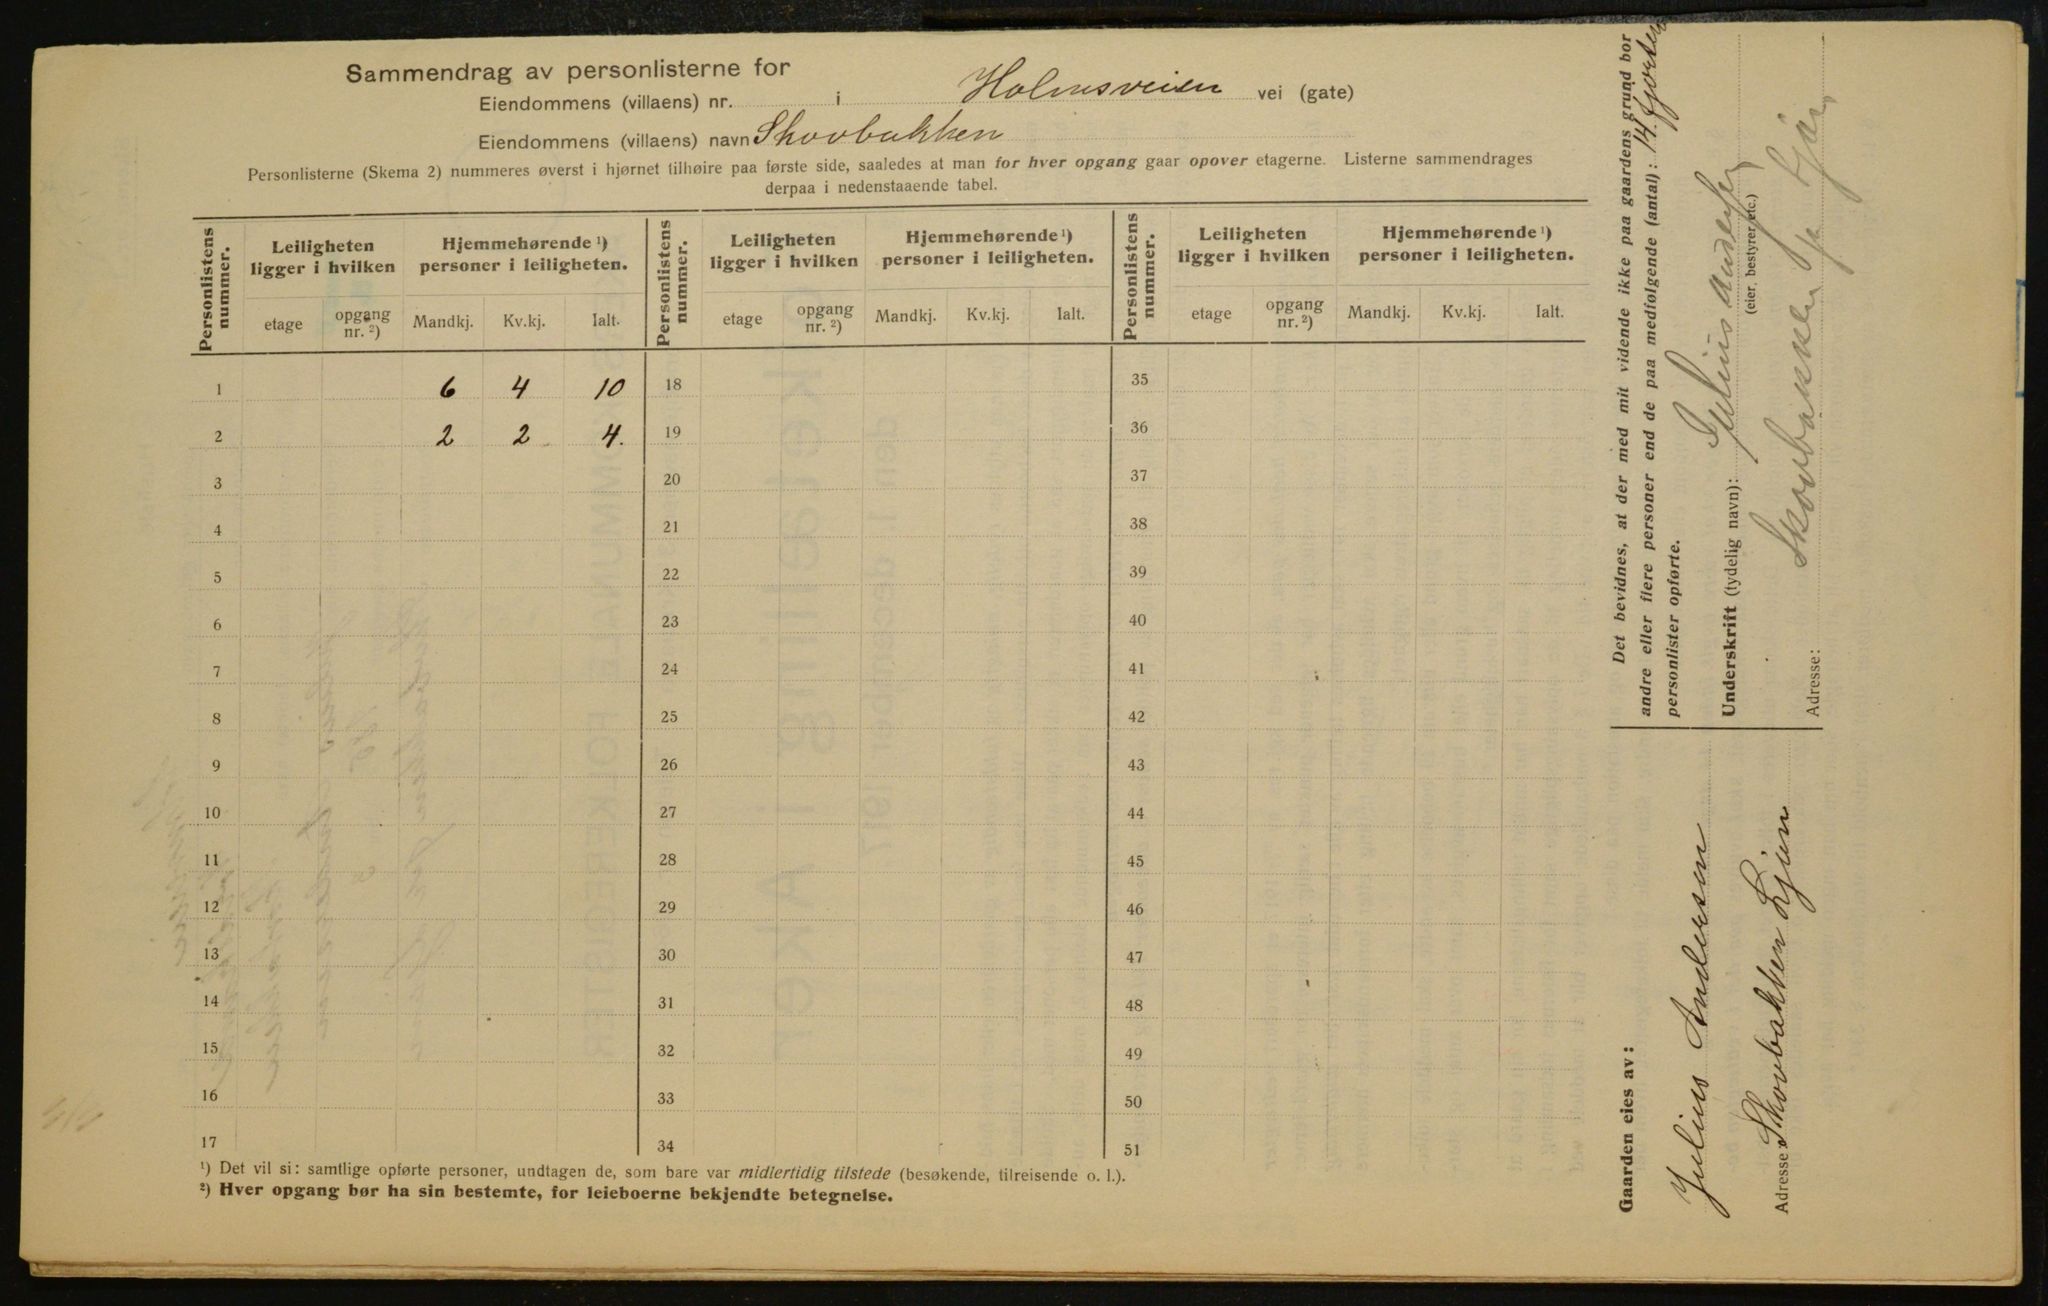 Sammendrag av personlisterne for
Eiendommens (villaens) nr. i Holmsveien vei (gate)
Eiendommens (villaens) navn Skovbakken
Personlisterne (Skema 2) nummeres øverst i hjørnet tilhøire paa første side, saaledes at man for hver opgang gaar opover etagerne. Listerne sammendrages
derpaa i nedenstaaende tabel.
Personlistens nummer. Leiligheten ligger i hvilken Hjemmehørende ¹) personer i leiligheten. Personlistens nummer. Leiligheten ligger i hvilken Hjemmehørende ¹) personer i leiligheten. Personlistens nummer. Leiligheten ligger i hvilken Hjemmehørende ¹) personer i leiligheten.
etage opgang nr. ²) Mandkj. Kv.kj. Ialt. etage opgang nr. ²) Mandkj. Kv.kj. Ialt. etage opgang nr. ²) Mandkj. Kv.kj. Ialt.
1 6 4 10 18 35
2 2 2 4. 19 36
3 20 37
4 21 38
5 22 39
6 23 40
7 24 41
8 25 42
9 26 43
10 27 44
11 28 45
12 29 46
13 30 47
14 31 48
15 32 49
16 33 50
17 34 51
¹) Det vil si: samtlige opførte personer, undtagen de, som bare var midlertidig tilstede (besøkende, tilreisende o. l.).
²) Hver opgang bør ha sin bestemte, for leieboerne bekjendte betegnelse.
Det bevidnes, at der med mit vidende ikke paa gaardens grund bor
andre eller flere personer end de paa medfølgende (antal): 14. fjorten
personlister opførte.
Underskrift (tydelig navn): Julius Andersen
(eier, bestyrer etc.)
Adresse: Skovbakken
Gaarden eies av:
Julius Andersen
Adresse Skovbakken Ljan